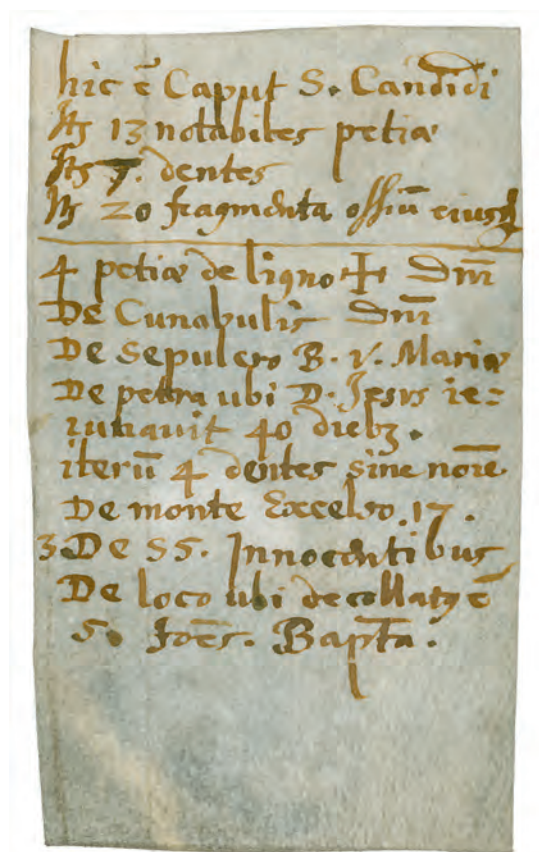 hic ē Caput S. Candidi
Itẽ 13 notabiles petiæ
Itẽ 7. dentes
Itẽ 20 fragmenta ossiū eiusdẽ
4 petiæ de ligno ✝ Dn̄i
De Cunabulis Dn̄i
De Sepulcro B. V. Mariæ
De petra ubi D. Jesus ie=
iunauit 40 dieb₃.
iterū 4 dentes sine noīe
De monte Excelso. 17.
3. De SS. Innocentibus
De loco ubi decollatꝰ ē
S. Joēs. Bapt̄a.